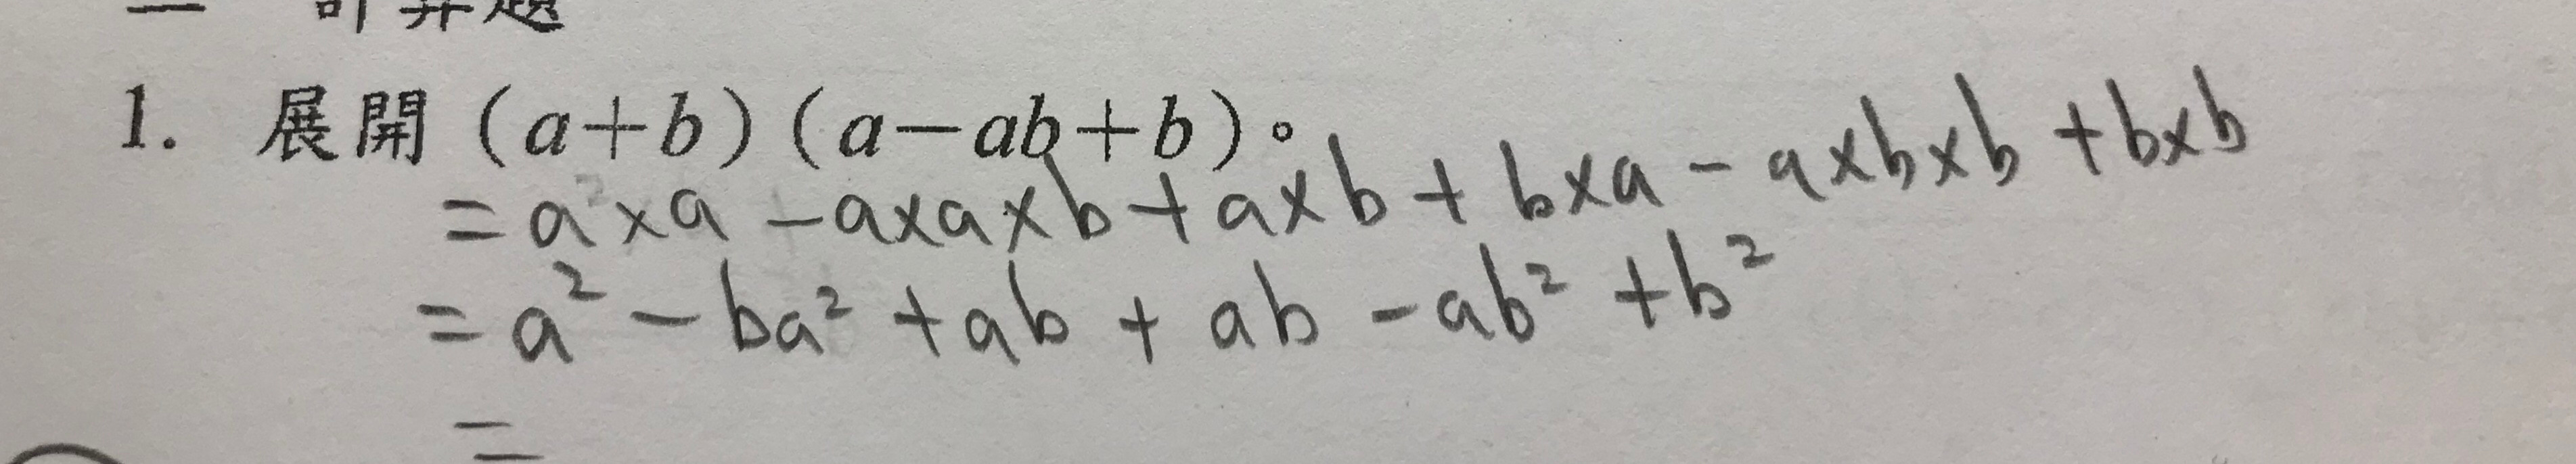 二 計算題
1. 展開 (a+b)(a-ab+b)。
=a×a-a×a×b+a×b+b×a-a×b×b+b×b
=a²-ba²+ab+ab-ab²+b²
=